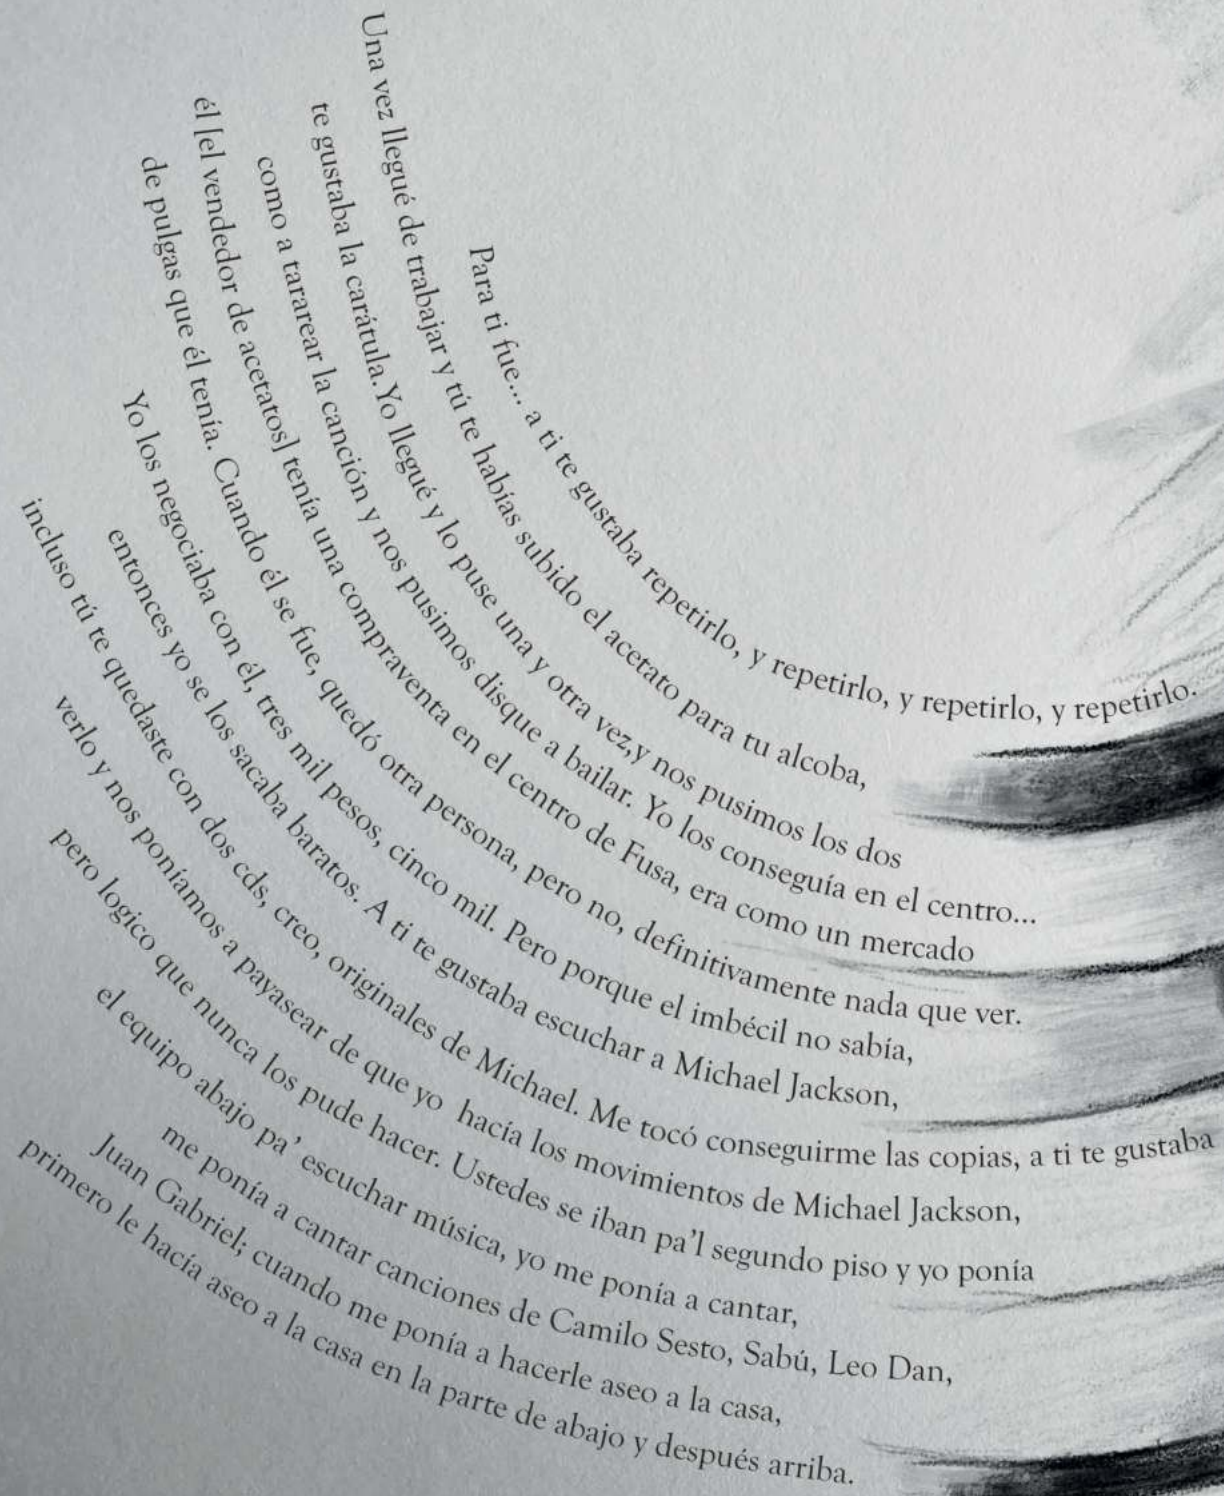 Para ti fue... a ti te gustaba repetirlo, y repetirlo, y repetirlo, y repetirlo.
Una vez llegué de trabajar y tú te habías subido el acetato para tu alcoba,
te gustaba la carátula.Yo llegué y lo puse una y otra vez,y nos pusimos los dos
como a tararear la canción y nos pusimos disque a bailar. Yo los conseguía en el centro...
él [el vendedor de acetatos] tenía una compraventa en el centro de Fusa, era como un mercado
de pulgas que él tenía. Cuando él se fue, quedó otra persona, pero no, definitivamente nada que ver.
Yo los negociaba con él, tres mil pesos, cinco mil. Pero porque el imbécil no sabía,
entonces yo se los sacaba baratos. A ti te gustaba escuchar a Michael Jackson,
incluso tú te quedaste con dos cds, creo, originales de Michael. Me tocó conseguirme las copias, a ti te gustaba
verlo y nos poníamos a payasear de que yo hacía los movimientos de Michael Jackson,
pero logico que nunca los pude hacer. Ustedes se iban pa'l segundo piso y yo ponía
el equipo abajo pa' escuchar música, yo me ponía a cantar,
me ponía a cantar canciones de Camilo Sesto, Sabú, Leo Dan,
Juan Gabriel; cuando me ponía a hacerle aseo a la casa,
primero le hacía aseo a la casa en la parte de abajo y después arriba.